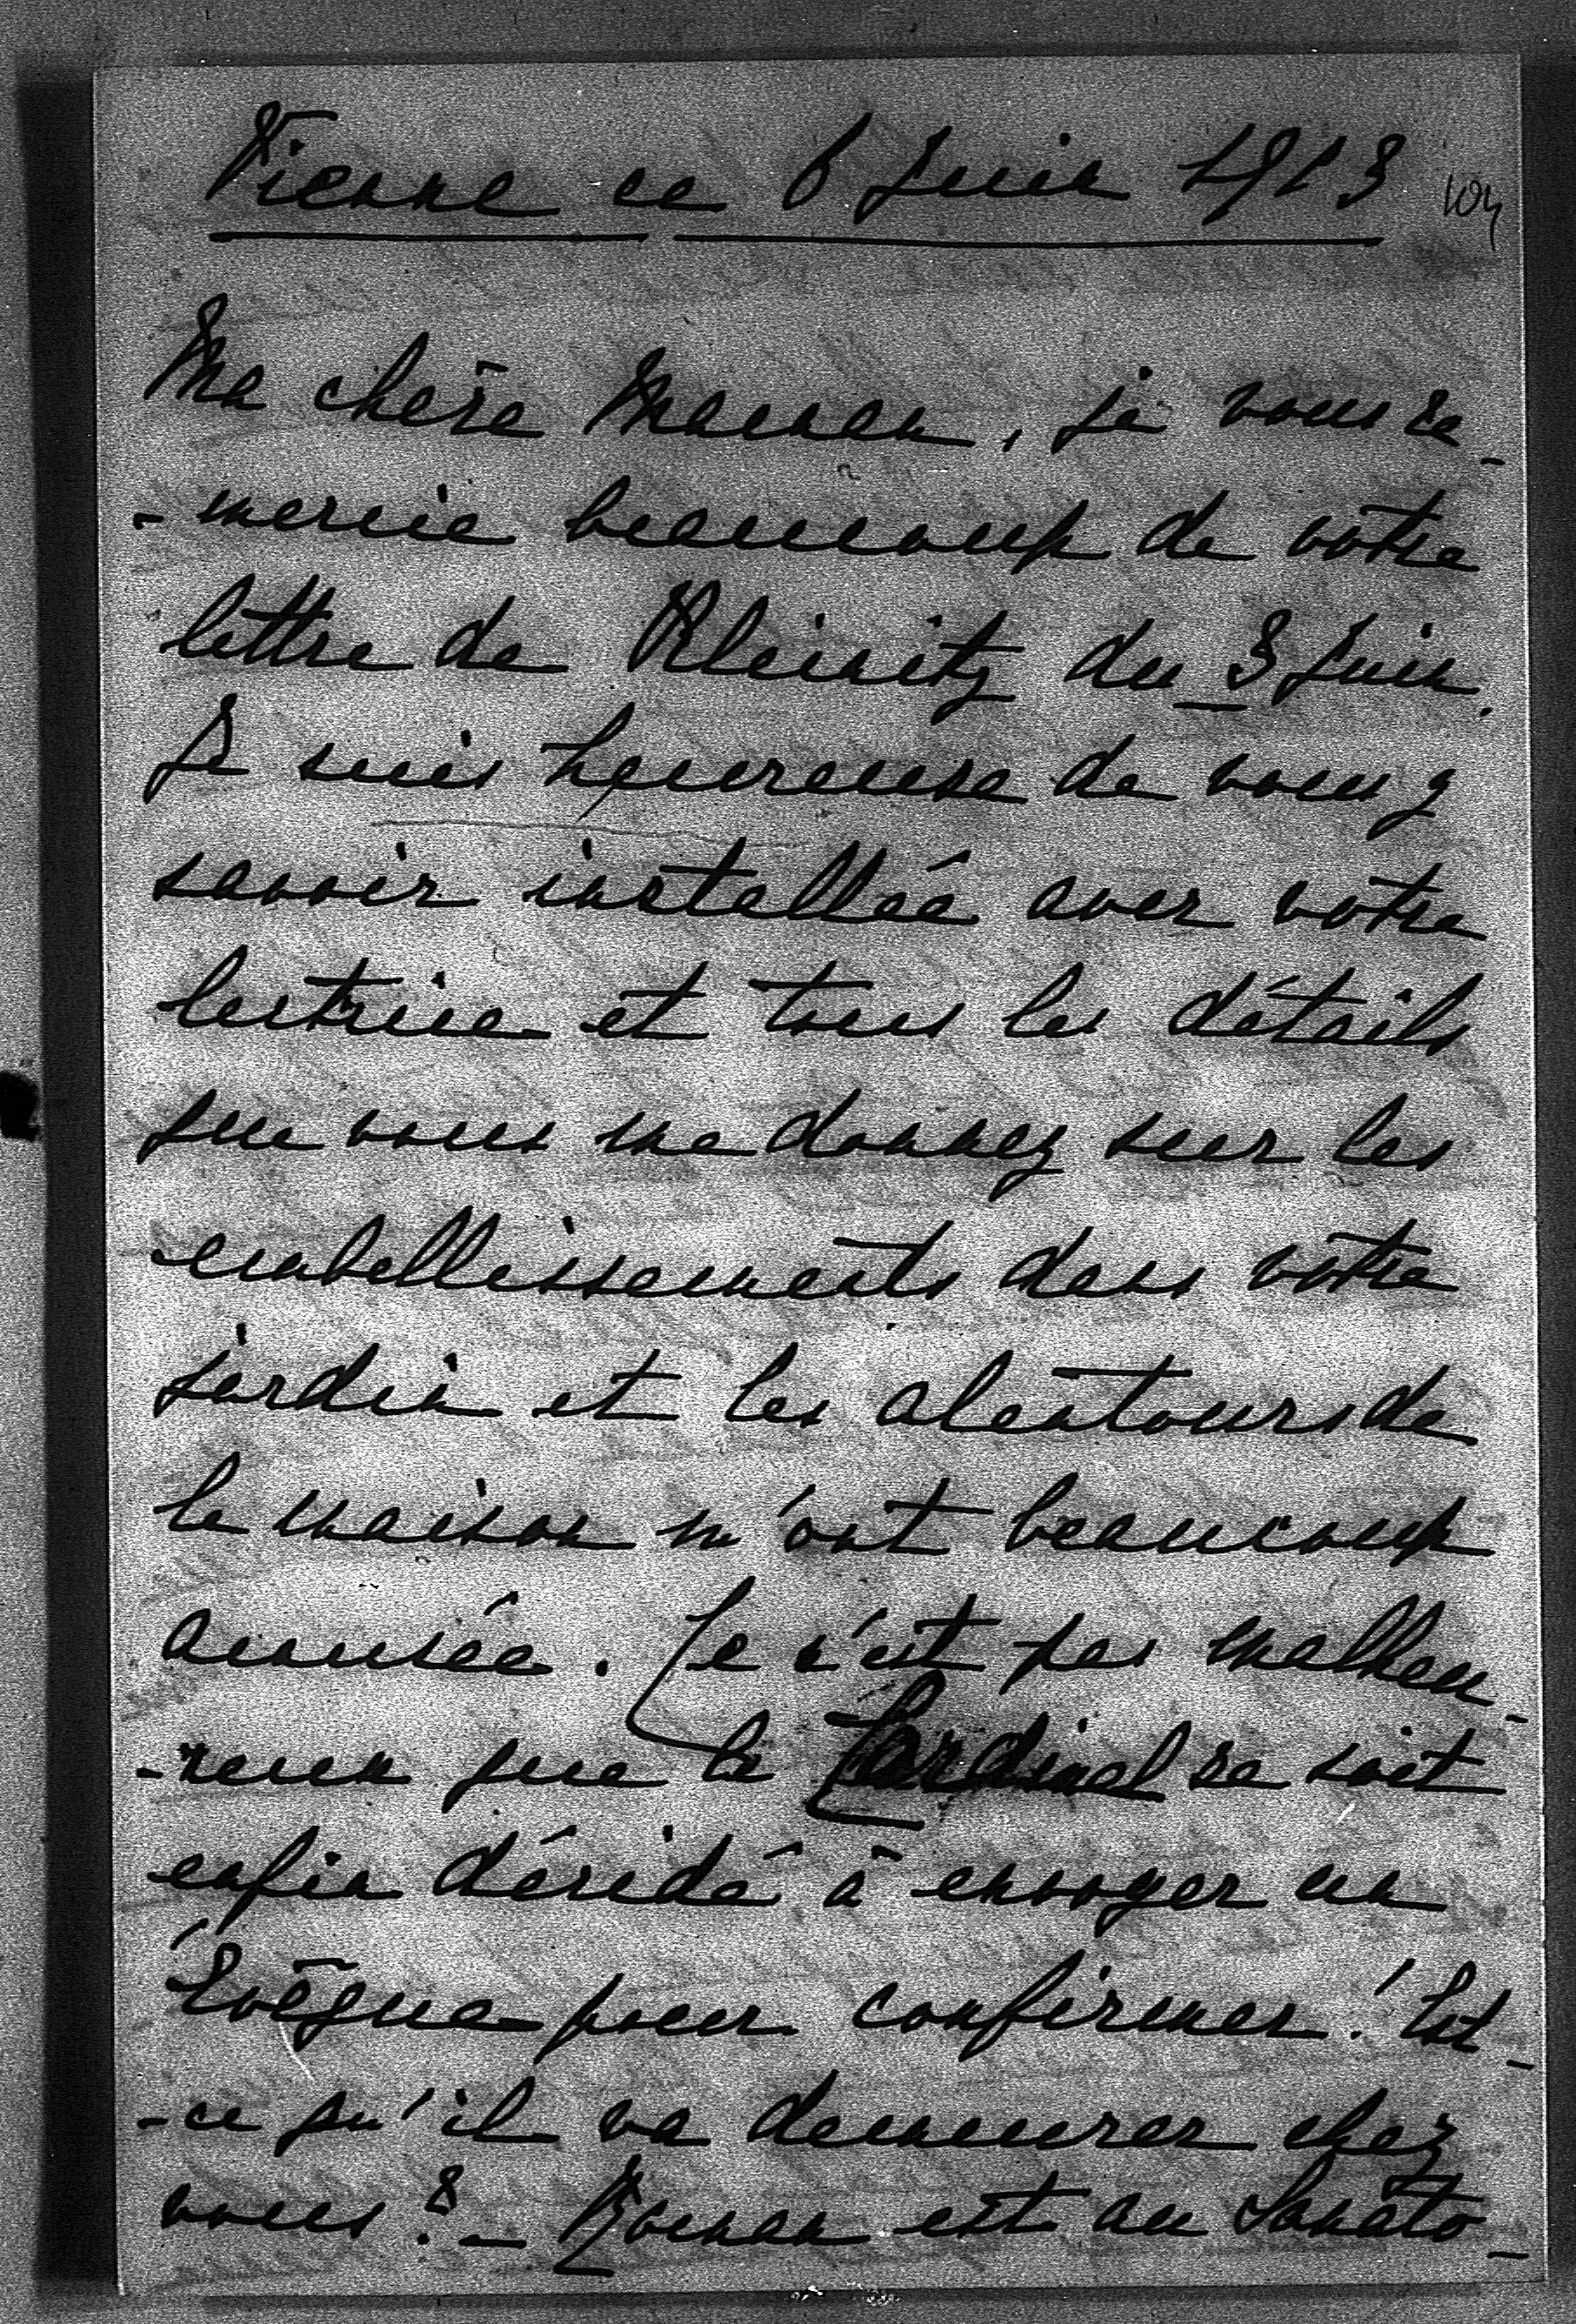 Vienne ce 6 Juin 1913
104
Ma chère Maman, je vous re-
-mercie beaucoup de votre
lettre de Kleinitz du 3 Juin.
Je suis heureuse de vous y
savoir installée avec votre
lectrice et tous les détails
que vous me donnez sur les
embellissements dans votre
jardin et les alentours de
la maison m'ont beaucoup
amusée. Ce n'est pas malheu-
-reux que le Cardinal se soit
enfin décidé à envoyer un
Evêque pour confirmer! Est-
-ce qu'il va demeurer chez
vous? - Roman est au Sanato-